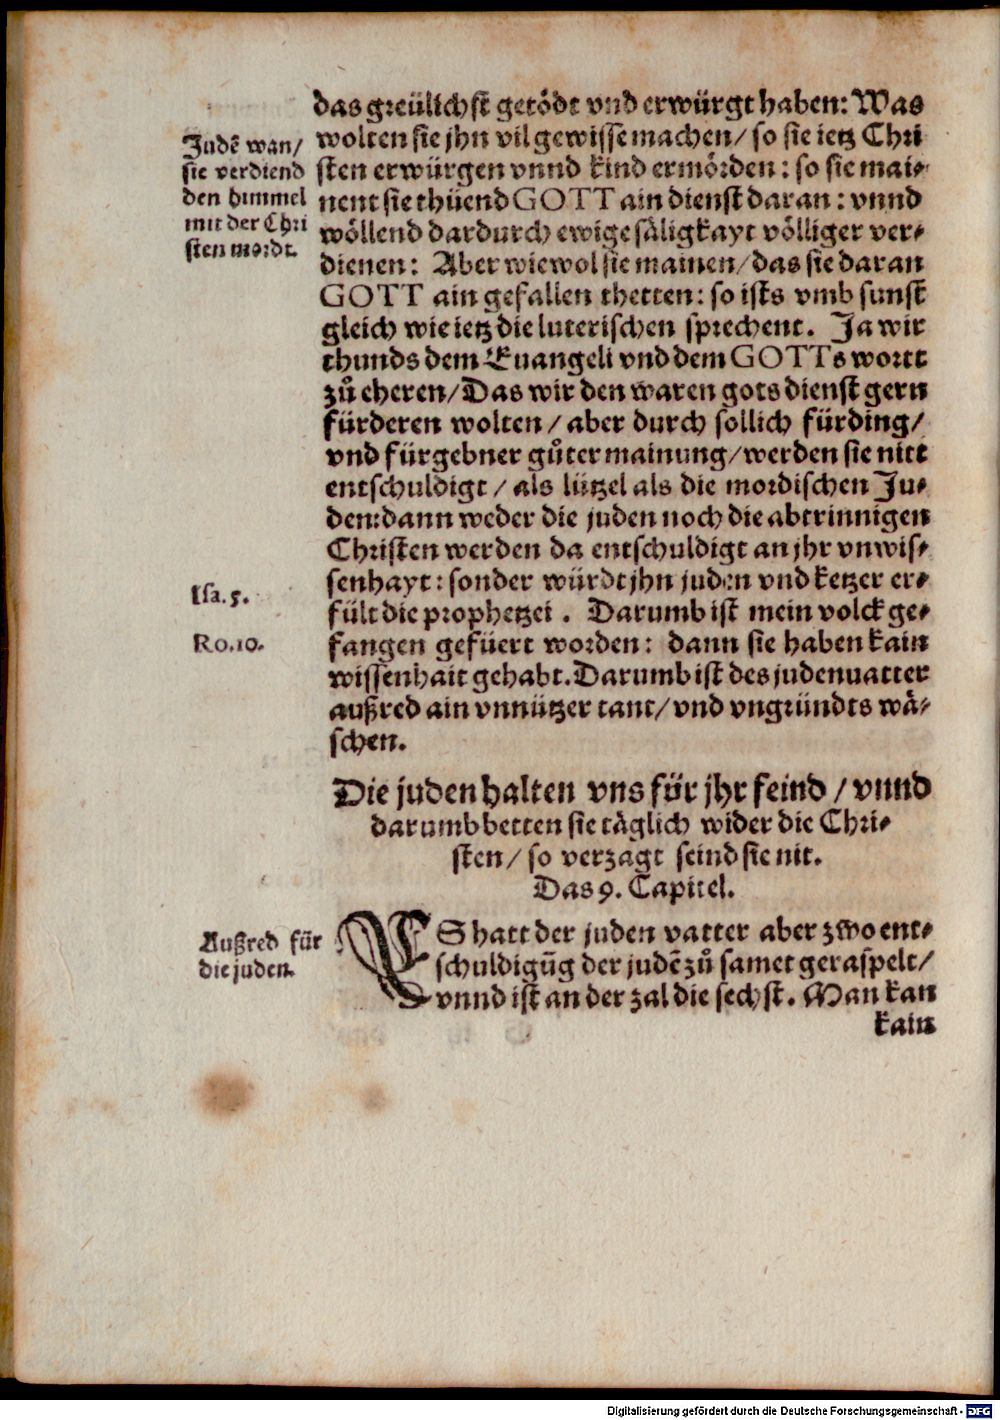 das greülichst getödt vnd erwürgt haben: Was
Judẽ wan/
sie verdiend
den himmel
mit der Chri
sten mordt.
wolten sie jhn vil gewisse machen/ so sie ietz Chri
sten erwürgen vnnd kind ermörden: so sie mai⸗
nent sie thüend GOTT ain dienst daran: vnnd
wöllend dardurch ewige säligkayt völliger ver⸗
dienen: Aber wiewol sie mainen/ das sie daran
GOTT ain gefallen thetten: so ists vmb sunst
gleich wie ietz die luterischen sprechent. Ja wir
thunds dem Euangeli vnd dem GOTTs wortt
zů eheren/ Das wir den waren gots dienst gern
fürderen wolten/ aber durch sollich fürding/
vnd fürgebner gůter mainung/ werden sie nitt
entschuldigt/ als lützel als die mordischen Ju⸗
den: dann weder die juden noch die abtrinnigen
Christen werden da entschuldigt an jhr vnwis⸗
senhayt: sonder würdt jhn juden vnd ketzer er⸗
Isa. 5.
fült die prophetzei. Darumb ist mein volck ge⸗
Ro. 10.
fangen gefüert worden: dann sie haben kain
wissenhait gehabt. Darumb ist des juden vatter
außred ain vnnützer tant/ vnd vngründts wä⸗
schen.
Die juden halten vns für jhr feind/ vnnd
darumb betten sie täglich wider die Chri⸗
sten/ so verzagt seind sie nit.
Das 9. Capitel.
Außred für
die juden.
ES hatt der juden vatter aber zwo ent⸗
schuldigũg der judẽ zů samet geraspelt/
vnnd ist an der zal die sechst. Man kan
kain
Digitalisierung gefördert durch die Deutsche Forschungsgemeinschaft - DFG